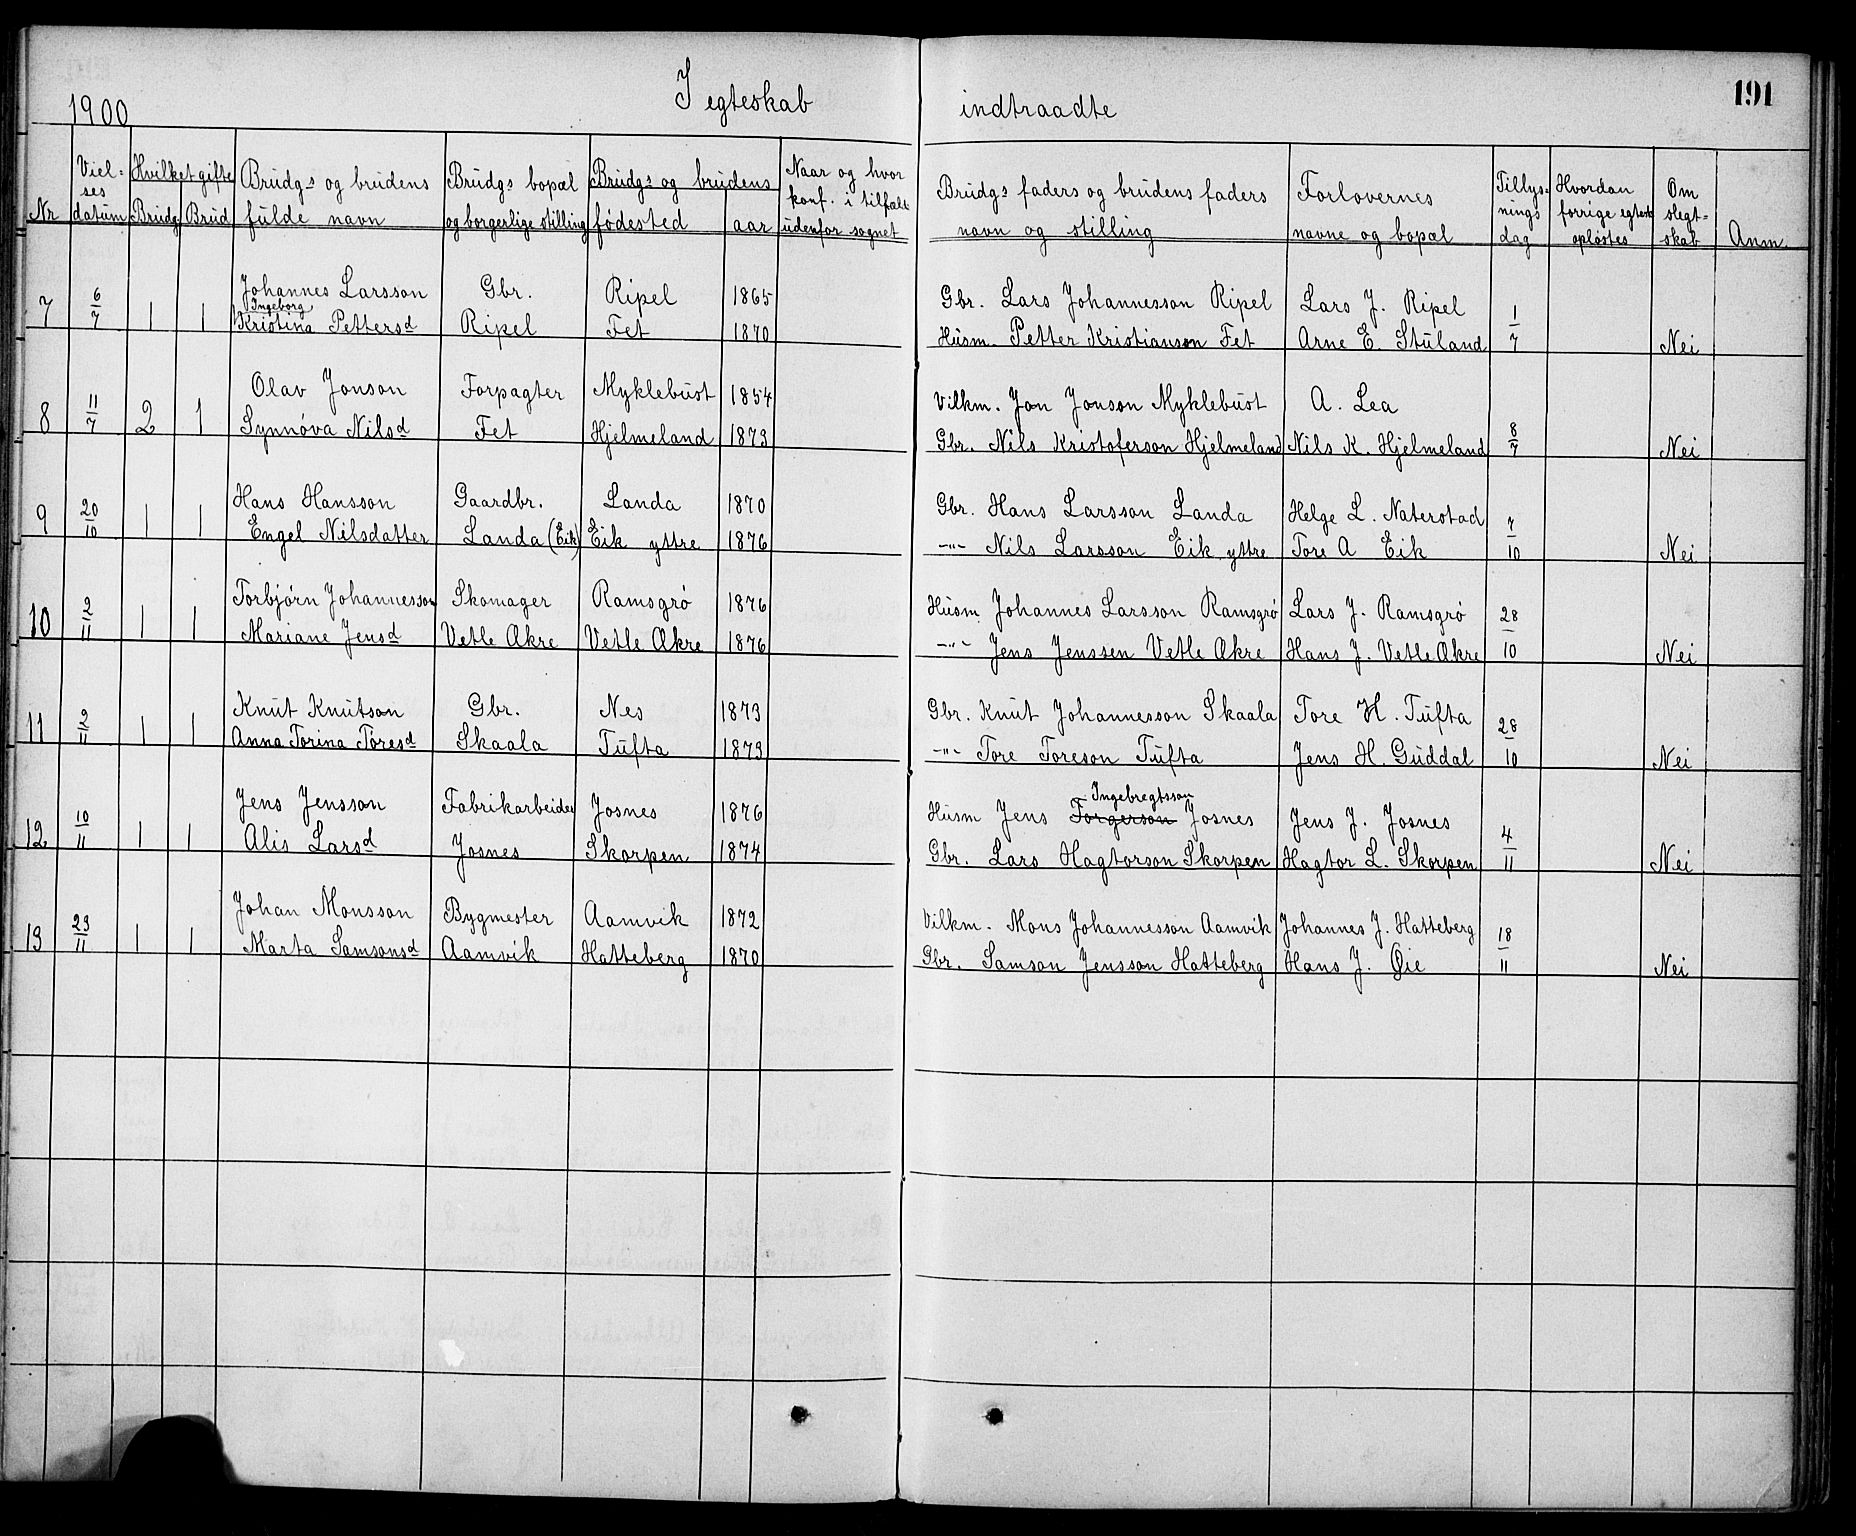 1900 I egteskab indtraadte 191
Nr. | Vielses datum | Hvilket gifte Brudg. Brud | Brudgs og brudens fulde navn | Brudgs bopæl og borgerlige stilling | Brudgs og brudens fødested | aar | Naar og hvor konf. i tilfælde udenfor sognet | Brudgs faders og brudens faders navn og stilling | Forlovernes navne og bopæl | Tillysnings dag | Hvordan forrige egtesk opløstes | Om slegtskab | Anm.
7 | 6/7 | 1 | 1 | Johannes Larsson | Gbr. | Ripel | 1865 | Gbr. Lars Johannesson Ripel | Lars J. Ripel | 1/7
Ingeborg
Kristina Pettersd | Ripel | Fet | 1870 | Husm. Petter Kristianson Fet | Arne E. Stuland | Nei
8 | 11/7 | 2 | 1 | Olav Jonson | Forpagter | Myklebust | 1854 | Vilkm. Jon Jonson Myklebust | A. Lea | 8/7
Synnøva Nilsd | Fet | Hjelmeland | 1873 | Gbr. Nils Kristoferson Hjelmeland | Nils K. Hjelmeland | Nei
9 | 20/10 | 1 | 1 | Hans Hansson | Gaardbr. | Landa | 1870 | Gbr. Hans Larsson Landa | Helge L. Naterstad | 7/10
Engel Nilsdatter | Landa (Eik) | Eik yttre | 1876 | -"- Nils Larsson Eik yttre | Tore A Eik | Nei
10 | 2/11 | 1 | 1 | Torbjørn Johannesson | Skomager | Ramsgrø | 1876 | Husm. Johannes Larsson Ramsgrø | Lars J. Ramsgrø | 28/10
Mariane Jensd | Vetle Akre | Vetle Akre | 1876 | -"- Jens Jenssen Vetle Akre | Hans J. Vetle Akre | Nei
11 | 2/11 | 1 | 1 | Knut Knutson | Gbr. | Nes | 1873 | Gbr. Knut Johannesson Skaala | Tore H. Tufta | 28/10
Anna Torina Toresd | Skaala | Tufta | 1873 | -"- Tore Toreson Tufta | Jens H. Guddal | Nei
12 | 10/11 | 1 | 1 | Jens Jensson | Fabrikarbeider | Josnes | 1876 | Husm Jens Torgerson Ingebregtsson Josnes | Jens J. Josnes | 4/11
Alis Larsd | Josnes | Skorpen | 1874 | Gbr. Lars Hagtorson Skorpen | Hagtor L. Skorpen | Nei
13 | 23/11 | 1 | 1 | Johan Monsson | Bygmester | Aamvik | 1872 | Vilkm. Mons Johannesson Aamvik | Johannes J. Hatteberg | 18/11
Marta Samsonsd | Aamvik | Hatteberg | 1870 | Gbr. Samson Jensson Hatteberg | Hans J. Øie | Nei